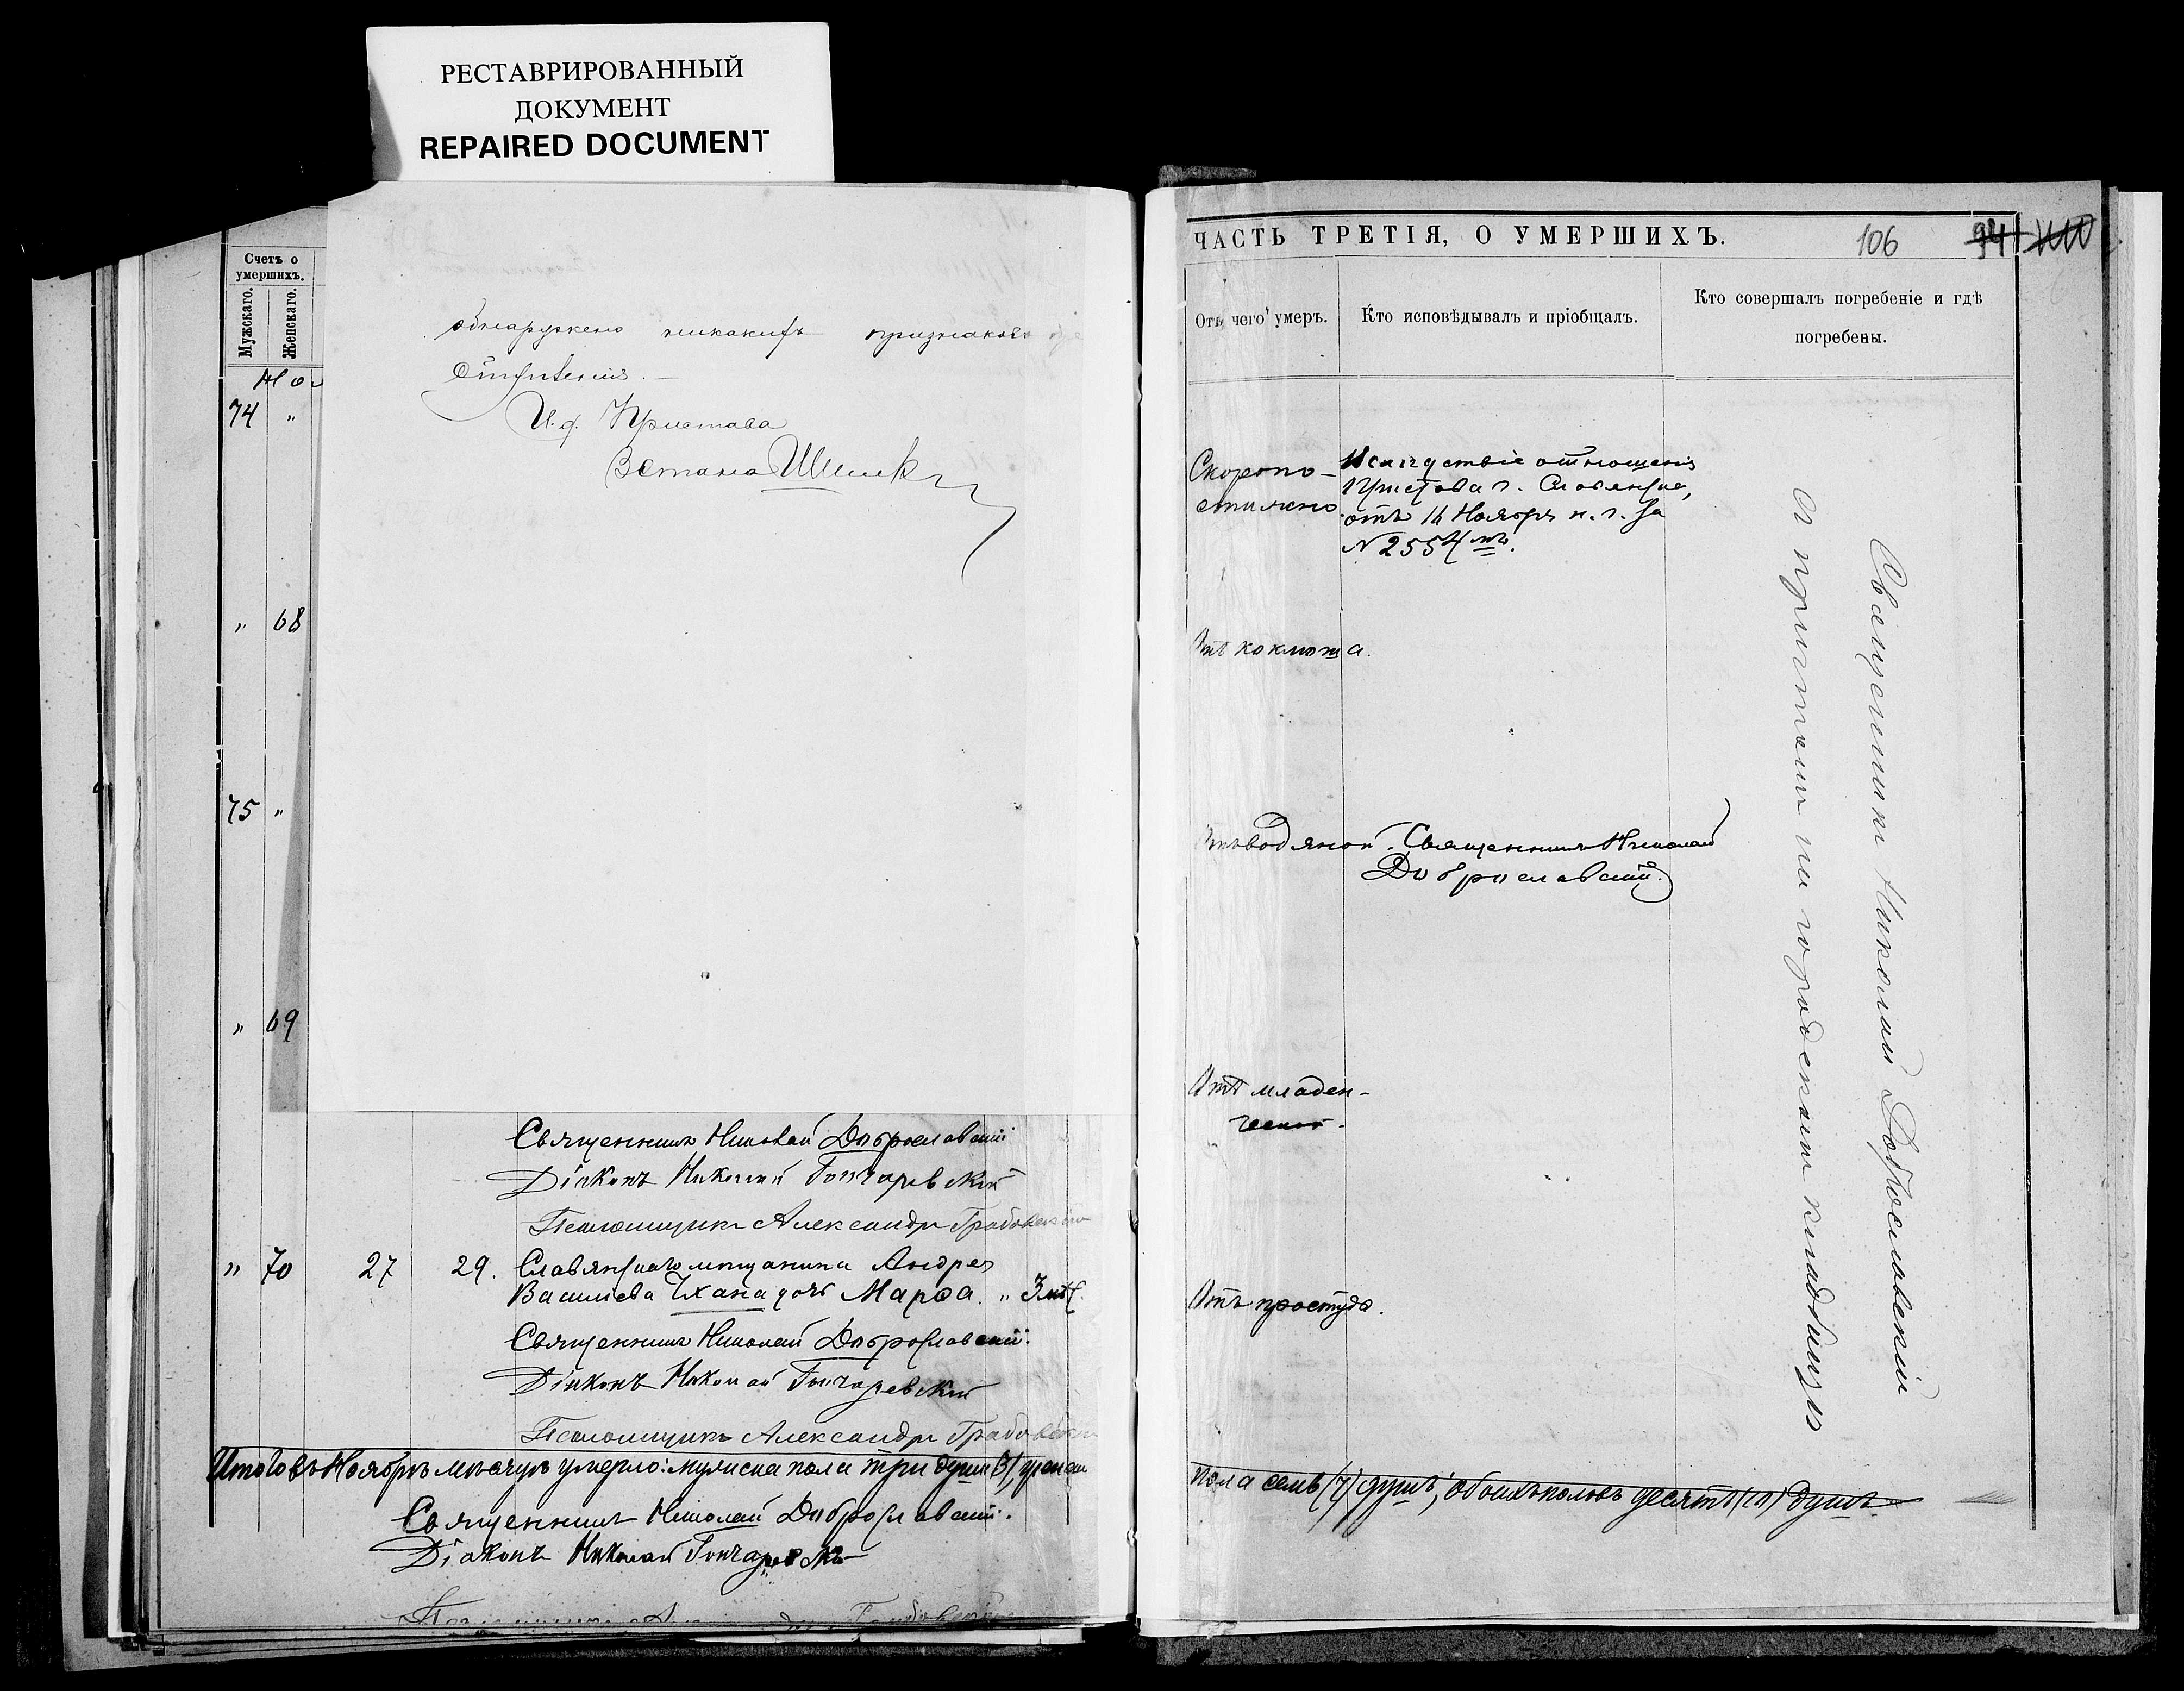 РЕСТАВРИРОВАННЫЙ
ДОКУМЕНТ
REPAIRED DOCUMENT
Счетъ о
умершихъ.
Мужскаго.
Женскаго.
74 "
" 68
75 "
" 69
обнаружено никакихъ признаковъ
И. д. Пристава
Священникъ Николай Доброславскій
Діаконъ Николай Гончаревскій
Псаломщикъ Александръ Грабовскій
" 70 27 29. Славянскаго мѣщанина Андрея
Васильева Чхана дочь Марѳа. " 3 мѣс.
Священникъ Николай Доброславскій.
Діаконъ Николай Гончаревскій
Псаломщикъ Александръ Грабовскій
Итого въ Ноябрѣ мѣсяцѣ умерло: мужска пола три души (3), женска
Священникъ Николай Доброславскій.
Діаконъ Николай Гончаревскій
ЧАСТЬ ТРЕТІЯ, О УМЕРШИХЪ.
106
94
Отъ чего умеръ.
Кто исповѣдывалъ и пріобщалъ.
Кто совершалъ погребеніе и гдѣ
погребены.
Скоропо-
стижно
Вслѣдствіе отношенія
Пристава г. Славянска,
отъ 14 Ноября н. г. за
№ 2554мъ.
Отъ коклюша.
Отъ водяной. Священникъ Николай
Доброславскій.
Отъ младен-
ческой.
Отъ простуды.
Священникъ Николай Доброславскій
съ причтомъ на городскомъ кладбищѣ
пола семь (7) душъ, обоихъ половъ десять (10) душъ.